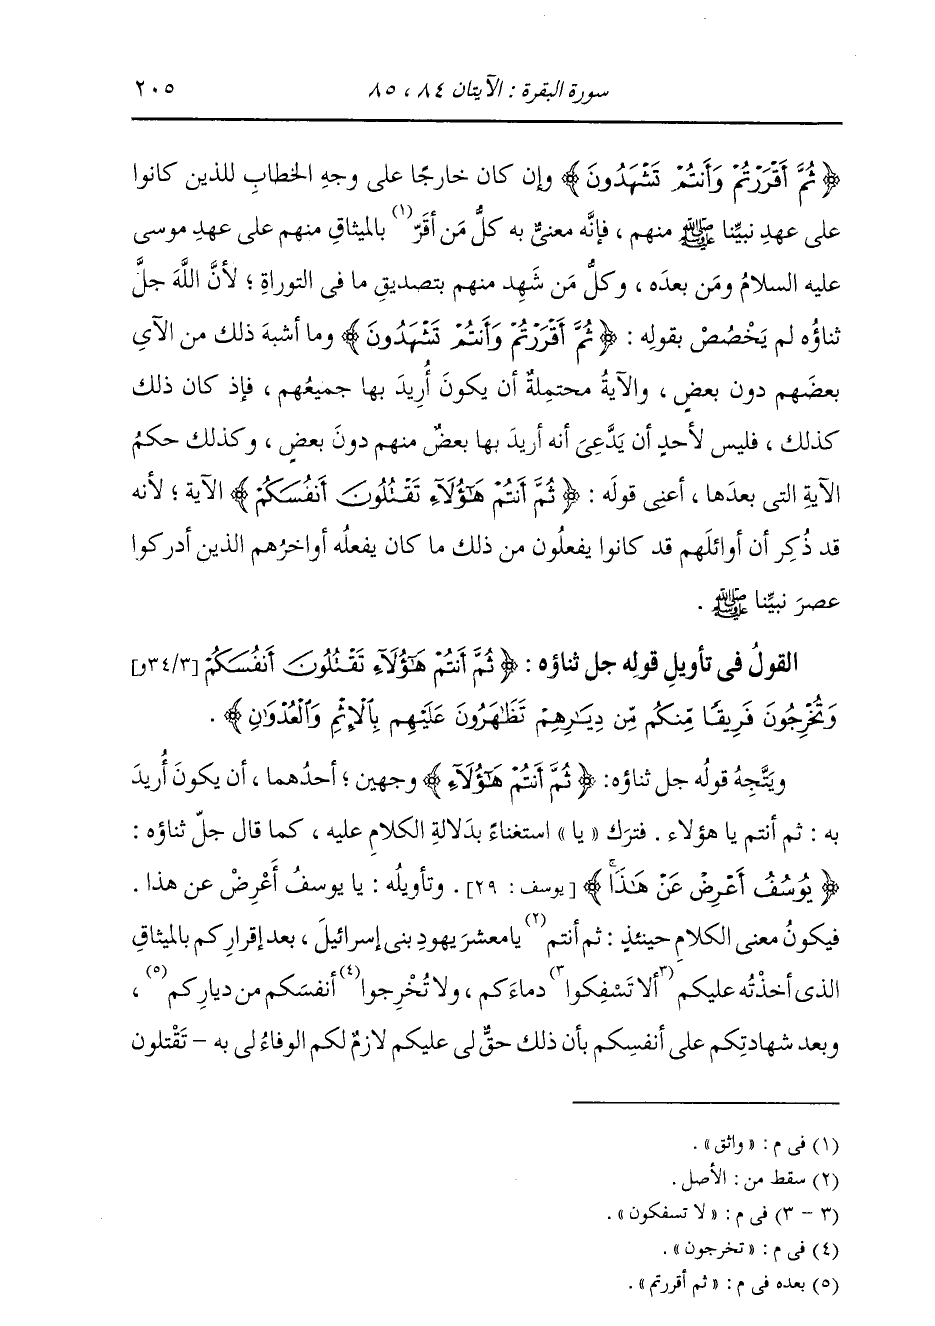 سورة البقرة : الآيتان ٨٤ ، ٨٥ ٢٠٥
﴿ ثُمَّ أَقْرَرْتُمْ وَأَنتُمْ تَشْهَدُونَ ﴾ وإن كان خارجًا على وجهِ الخطابِ للذين كانوا
على عهدِ نبيِّنا ﷺ منهم ، فإنَّه معنىٌّ به كلُّ مَن أقَرّ(١) بالميثاقِ منهم على عهدِ موسى
عليه السلامُ ومَن بعدَه ، وكلُّ مَن شَهِد منهم بتصديقِ ما فى التوراةِ ؛ لأنَّ اللَّهَ جلَّ
ثناؤُه لم يَخْصُصْ بقولِه : ﴿ ثُمَّ أَقْرَرْتُمْ وَأَنتُمْ تَشْهَدُونَ ﴾ وما أشبهَ ذلك من الآىِ
بعضَهم دون بعضٍ ، والآيةُ محتمِلةٌ أن يكونَ أُرِيدَ بها جميعُهم ، فإذ كان ذلك
كذلك ، فليس لأحدٍ أن يَدَّعِىَ أنه أريدَ بها بعضٌ منهم دونَ بعضٍ ، وكذلك حكمُ
الآيةِ التى بعدَها ، أعنِى قولَه : ﴿ ثُمَّ أَنتُمْ هَٰٓؤُلَآءِ تَقْتُلُونَ أَنفُسَكُمْ ﴾ الآية ؛ لأنه
قد ذُكِر أن أوائلَهم قد كانوا يفعلُون من ذلك ما كان يفعلُه أواخرُهم الذين أدركوا
عصرَ نبيِّنا ﷺ .
القولُ فى تأويلِ قولِه جل ثناؤه : ﴿ ثُمَّ أَنتُمْ هَٰٓؤُلَآءِ تَقْتُلُونَ أَنفُسَكُمْ [٣٤/٣و]
وَتُخْرِجُونَ فَرِيقًا مِّنكُم مِّن دِيَٰرِهِمْ تَظَٰهَرُونَ عَلَيْهِم بِٱلْإِثْمِ وَٱلْعُدْوَٰنِ ﴾ .
ويَتَّجِهُ قولُه جل ثناؤه: ﴿ ثُمَّ أَنتُمْ هَٰٓؤُلَآءِ ﴾ وجهين ؛ أحدُهما ، أن يكونَ أُريدَ
به : ثم أنتم يا هؤلاء . فترَك « يا » استغناءً بدَلالةِ الكلامِ عليه ، كما قال جلّ ثناؤه :
﴿ يُوسُفُ أَعْرِضْ عَنْ هَٰذَا ۚ ﴾ [ يوسف : ٢٩ ] . وتأويلُه : يا يوسفُ أَعْرِضْ عن هذا .
فيكونُ معنى الكلامِ حينئذٍ : ثم أنتم(٢) يا معشرَ يهودِ بنى إسرائيلَ ، بعد إقرارِكم بالميثاقِ
الذى أخذْتُه عليكم (٣ألا تَسْفِكوا٣) دماءَكم ، ولا تُخْرِجوا(٤) أنفسَكم من ديارِكم(٥) ،
وبعد شهادتِكم على أنفسِكم بأن ذلك حقٌّ لى عليكم لازمٌ لكم الوفاءُ لى به – تَقْتلون
(١) فى م : « واثق » .
(٢) سقط من : الأصل .
(٣ – ٣) فى م : « لا تسفكون » .
(٤) فى م : « تخرجون » .
(٥) بعده فى م : « ثم أقررتم » .